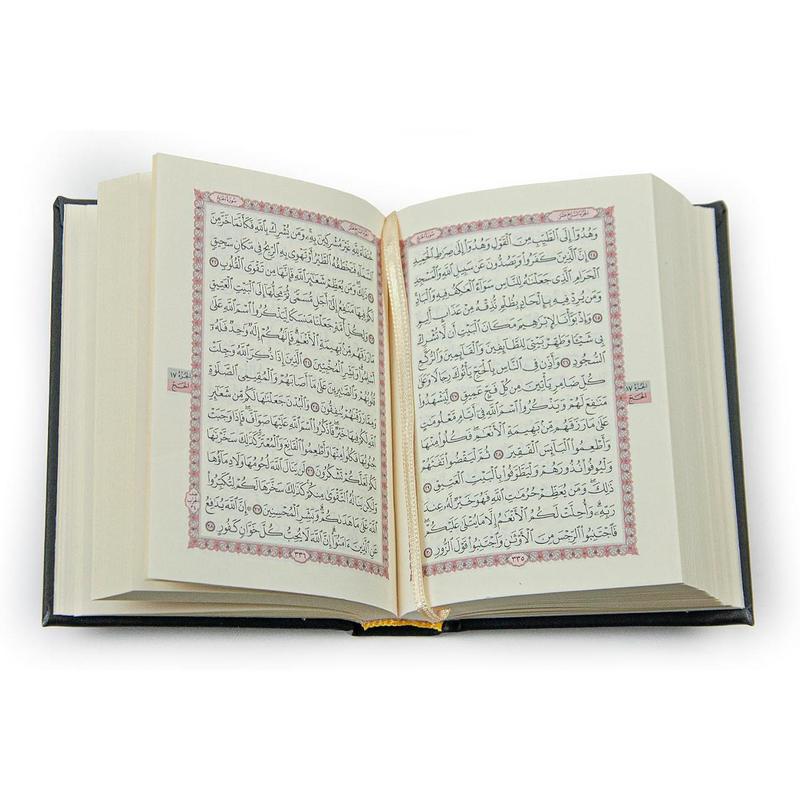 الجزء السابع عشر
سورة الحج
وَهُدُوٓاْ إِلَى ٱلطَّيِّبِ مِنَ ٱلْقَوْلِ وَهُدُوٓاْ إِلَىٰ صِرَٰطِ ٱلْحَمِيدِ
٢٤ إِنَّ ٱلَّذِينَ كَفَرُواْ وَيَصُدُّونَ عَن سَبِيلِ ٱللَّهِ وَٱلْمَسْجِدِ
ٱلْحَرَامِ ٱلَّذِى جَعَلْنَٰهُ لِلنَّاسِ سَوَآءً ٱلْعَٰكِفُ فِيهِ وَٱلْبَادِ
وَمَن يُرِدْ فِيهِ بِإِلْحَادٍۭ بِظُلْمٍ نُّذِقْهُ مِنْ عَذَابٍ أَلِيمٍ
٢٥ وَإِذْ بَوَّأْنَا لِإِبْرَٰهِيمَ مَكَانَ ٱلْبَيْتِ أَن لَّا تُشْرِكْ
بِى شَيْـًٔا وَطَهِّرْ بَيْتِىَ لِلطَّآئِفِينَ وَٱلْقَآئِمِينَ وَٱلرُّكَّعِ
ٱلسُّجُودِ ٢٦ وَأَذِّن فِى ٱلنَّاسِ بِٱلْحَجِّ يَأْتُوكَ رِجَالًا وَعَلَىٰ
كُلِّ ضَامِرٍ يَأْتِينَ مِن كُلِّ فَجٍّ عَمِيقٍ ٢٧ لِّيَشْهَدُواْ
مَنَٰفِعَ لَهُمْ وَيَذْكُرُواْ ٱسْمَ ٱللَّهِ فِىٓ أَيَّامٍ مَّعْلُومَٰتٍ
عَلَىٰ مَا رَزَقَهُم مِّنۢ بَهِيمَةِ ٱلْأَنْعَٰمِ فَكُلُواْ مِنْهَا
وَأَطْعِمُواْ ٱلْبَآئِسَ ٱلْفَقِيرَ ٢٨ ثُمَّ لْيَقْضُواْ تَفَثَهُمْ
وَلْيُوفُواْ نُذُورَهُمْ وَلْيَطَّوَّفُواْ بِٱلْبَيْتِ ٱلْعَتِيقِ ٢٩
ذَٰلِكَ وَمَن يُعَظِّمْ حُرُمَٰتِ ٱللَّهِ فَهُوَ خَيْرٌ لَّهُۥ عِندَ
رَبِّهِۦ وَأُحِلَّتْ لَكُمُ ٱلْأَنْعَٰمُ إِلَّا مَا يُتْلَىٰ عَلَيْكُمْ
فَٱجْتَنِبُواْ ٱلرِّجْسَ مِنَ ٱلْأَوْثَٰنِ وَٱجْتَنِبُواْ قَوْلَ ٱلزُّورِ ٣٠
الجزء ١٧
الحج
٣٣٥
الجزء السابع عشر
سورة الحج
حُنَفَآءَ لِلَّهِ غَيْرَ مُشْرِكِينَ بِهِۦ وَمَن يُشْرِكْ بِٱللَّهِ فَكَأَنَّمَا خَرَّ مِنَ
ٱلسَّمَآءِ فَتَخْطَفُهُ ٱلطَّيْرُ أَوْ تَهْوِى بِهِ ٱلرِّيحُ فِى مَكَانٍ سَحِيقٍ
٣١ ذَٰلِكَ وَمَن يُعَظِّمْ شَعَٰٓئِرَ ٱللَّهِ فَإِنَّهَا مِن تَقْوَى ٱلْقُلُوبِ ٣٢
لَكُمْ فِيهَا مَنَٰفِعُ إِلَىٰٓ أَجَلٍ مُّسَمًّى ثُمَّ مَحِلُّهَآ إِلَى ٱلْبَيْتِ ٱلْعَتِيقِ
٣٣ وَلِكُلِّ أُمَّةٍ جَعَلْنَا مَنسَكًا لِّيَذْكُرُواْ ٱسْمَ ٱللَّهِ عَلَىٰ
مَا رَزَقَهُم مِّنۢ بَهِيمَةِ ٱلْأَنْعَٰمِ فَإِلَٰهُكُمْ إِلَٰهٌ وَٰحِدٌ فَلَهُۥٓ
أَسْلِمُواْ وَبَشِّرِ ٱلْمُخْبِتِينَ ٣٤ ٱلَّذِينَ إِذَا ذُكِرَ ٱللَّهُ وَجِلَتْ
قُلُوبُهُمْ وَٱلصَّٰبِرِينَ عَلَىٰ مَآ أَصَابَهُمْ وَٱلْمُقِيمِى ٱلصَّلَوٰةِ
وَمِمَّا رَزَقْنَٰهُمْ يُنفِقُونَ ٣٥ وَٱلْبُدْنَ جَعَلْنَٰهَا لَكُم مِّن شَعَٰٓئِرِ
ٱللَّهِ لَكُمْ فِيهَا خَيْرٌ فَٱذْكُرُواْ ٱسْمَ ٱللَّهِ عَلَيْهَا صَوَآفَّ فَإِذَا وَجَبَتْ
جُنُوبُهَا فَكُلُواْ مِنْهَا وَأَطْعِمُواْ ٱلْقَانِعَ وَٱلْمُعْتَرَّ كَذَٰلِكَ سَخَّرْنَٰهَا
لَكُمْ لَعَلَّكُمْ تَشْكُرُونَ ٣٦ لَن يَنَالَ ٱللَّهَ لُحُومُهَا وَلَا دِمَآؤُهَا
وَلَٰكِن يَنَالُهُ ٱلتَّقْوَىٰ مِنكُمْ كَذَٰلِكَ سَخَّرَهَا لَكُمْ لِتُكَبِّرُواْ
ٱللَّهَ عَلَىٰ مَا هَدَىٰكُمْ وَبَشِّرِ ٱلْمُحْسِنِينَ ٣٧ ۞ إِنَّ ٱللَّهَ يُدَٰفِعُ
عَنِ ٱلَّذِينَ ءَامَنُوٓاْ إِنَّ ٱللَّهَ لَا يُحِبُّ كُلَّ خَوَّانٍ كَفُورٍ ٣٨
الجزء ١٧
الحج
٣٣٦